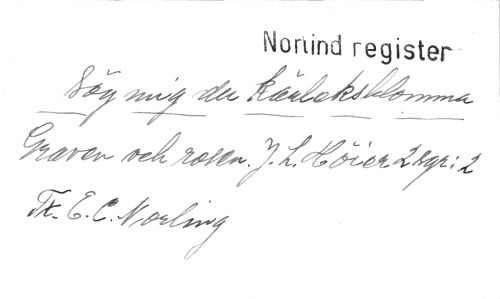 Norlind register
Säg mig du kärleksblomma
Graven och rosen. J. L. Höier 2 sgr: 2
Tr. E. C. Norling